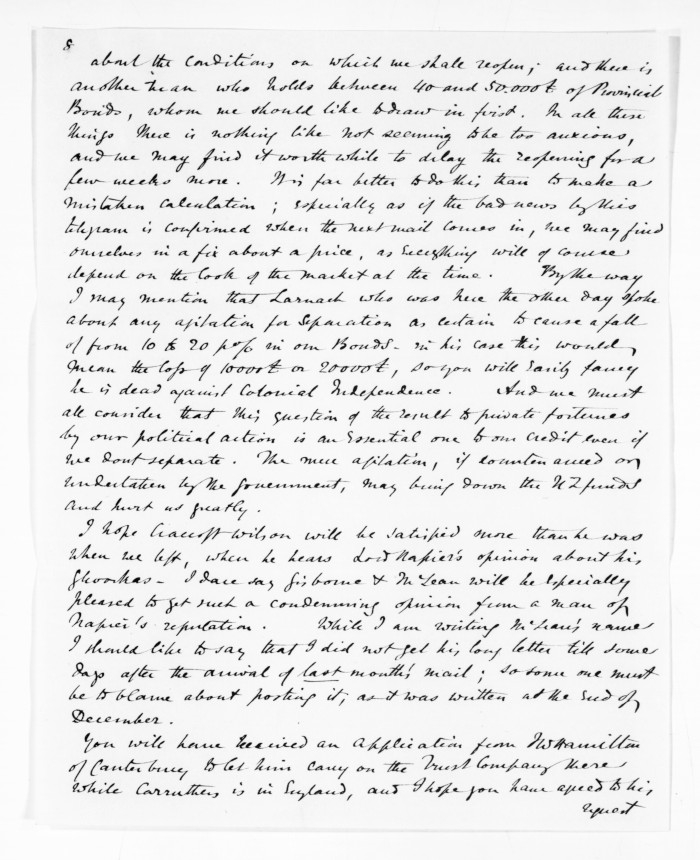 8
about the conditions on which we shall reopen; and there is
another man who holds between 40 and 50.000£ of Provincial
Bonds, whom we should like to draw in first. In all these
things there is nothing like not seeming to be too anxious,
and we may find it worth while to delay the reopening for a
few weeks more. It is far better to do this than to make a
mistaken calculation; especially as if the bad news by this
telegram is confirmed when the next mail comes in, we may find
ourselves in a fix about a price, as everything will of course
depend on the look of the market at the time. By the way
I may mention that Larnach who was here the other day spoke
about any agitation for Separation as certain to cause a fall
of from 10 to 20 p% in our Bonds - in his case this would
mean the loss of 10000£ or 20000£, so you will easily fancy
he is dead against Colonial Independence. And we must
all consider that this question of the result to private fortunes
by our political action is an essential one to our credit even if
we dont separate. The mere agitation, if countenanced or
undertaken by the Government, may bring down the NZ funds
and hurt us greatly.
I hope Cracroft Wilson will be satisfied more than he was
when we left, when he hears Lord Napier's opinion about his
Ghoorkas - I dare say Gisborne & McLean will be especially
pleased to get such a condemning opinion from a man of
Napier's reputation. While I am writing McLean's name
I should like to say that I did not get his long letter till some
days after the arrival of last month's mail; so some one must
be to blame about posting it, as it was written at the end of
December.
You will have received an application from Hamilton
of Canterbury to let him carry on the Trust Company there
while Carruthers is in England, and I hope you have agreed to his
request